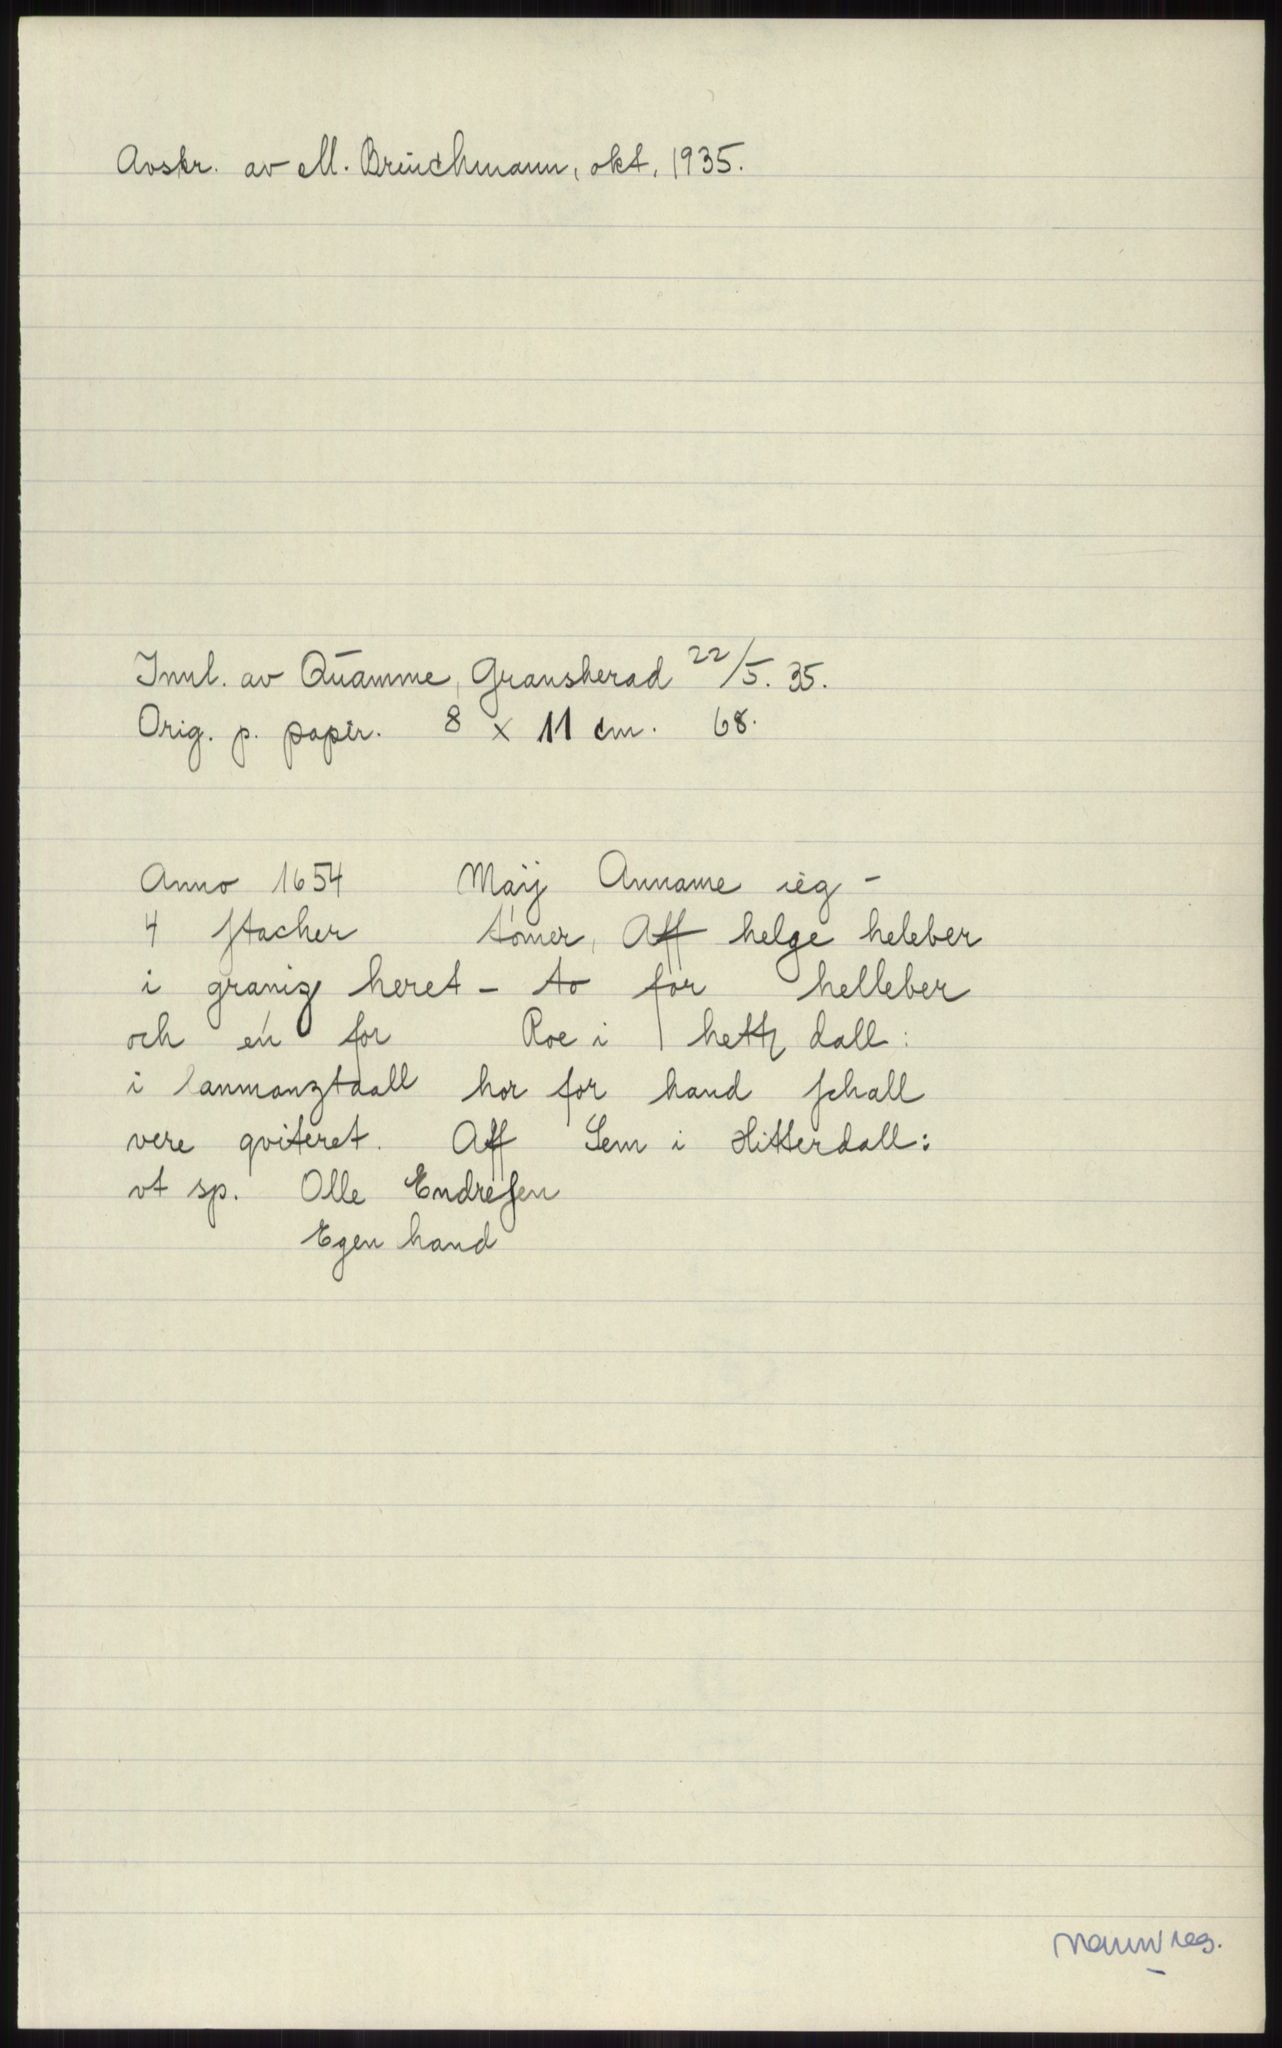 Avskr. av M. Brinchmann, okt. 1935.
Innl. av Quamme, Gransherad 22/5. 35.
Orig. p. papir. 8 x 11 cm. 68.
Anno 1654 Maij Anname ieg -
4 stacher tømer, Aff helge heleber
i granig heret - to for helleber
och en for Roe i hettz dall:
i lanmanztdall hor for hand schall
vere qviteret. Aff Sem i Hitterdall:
vt sp. Olle Endresen
Egen hand
Navnreg.